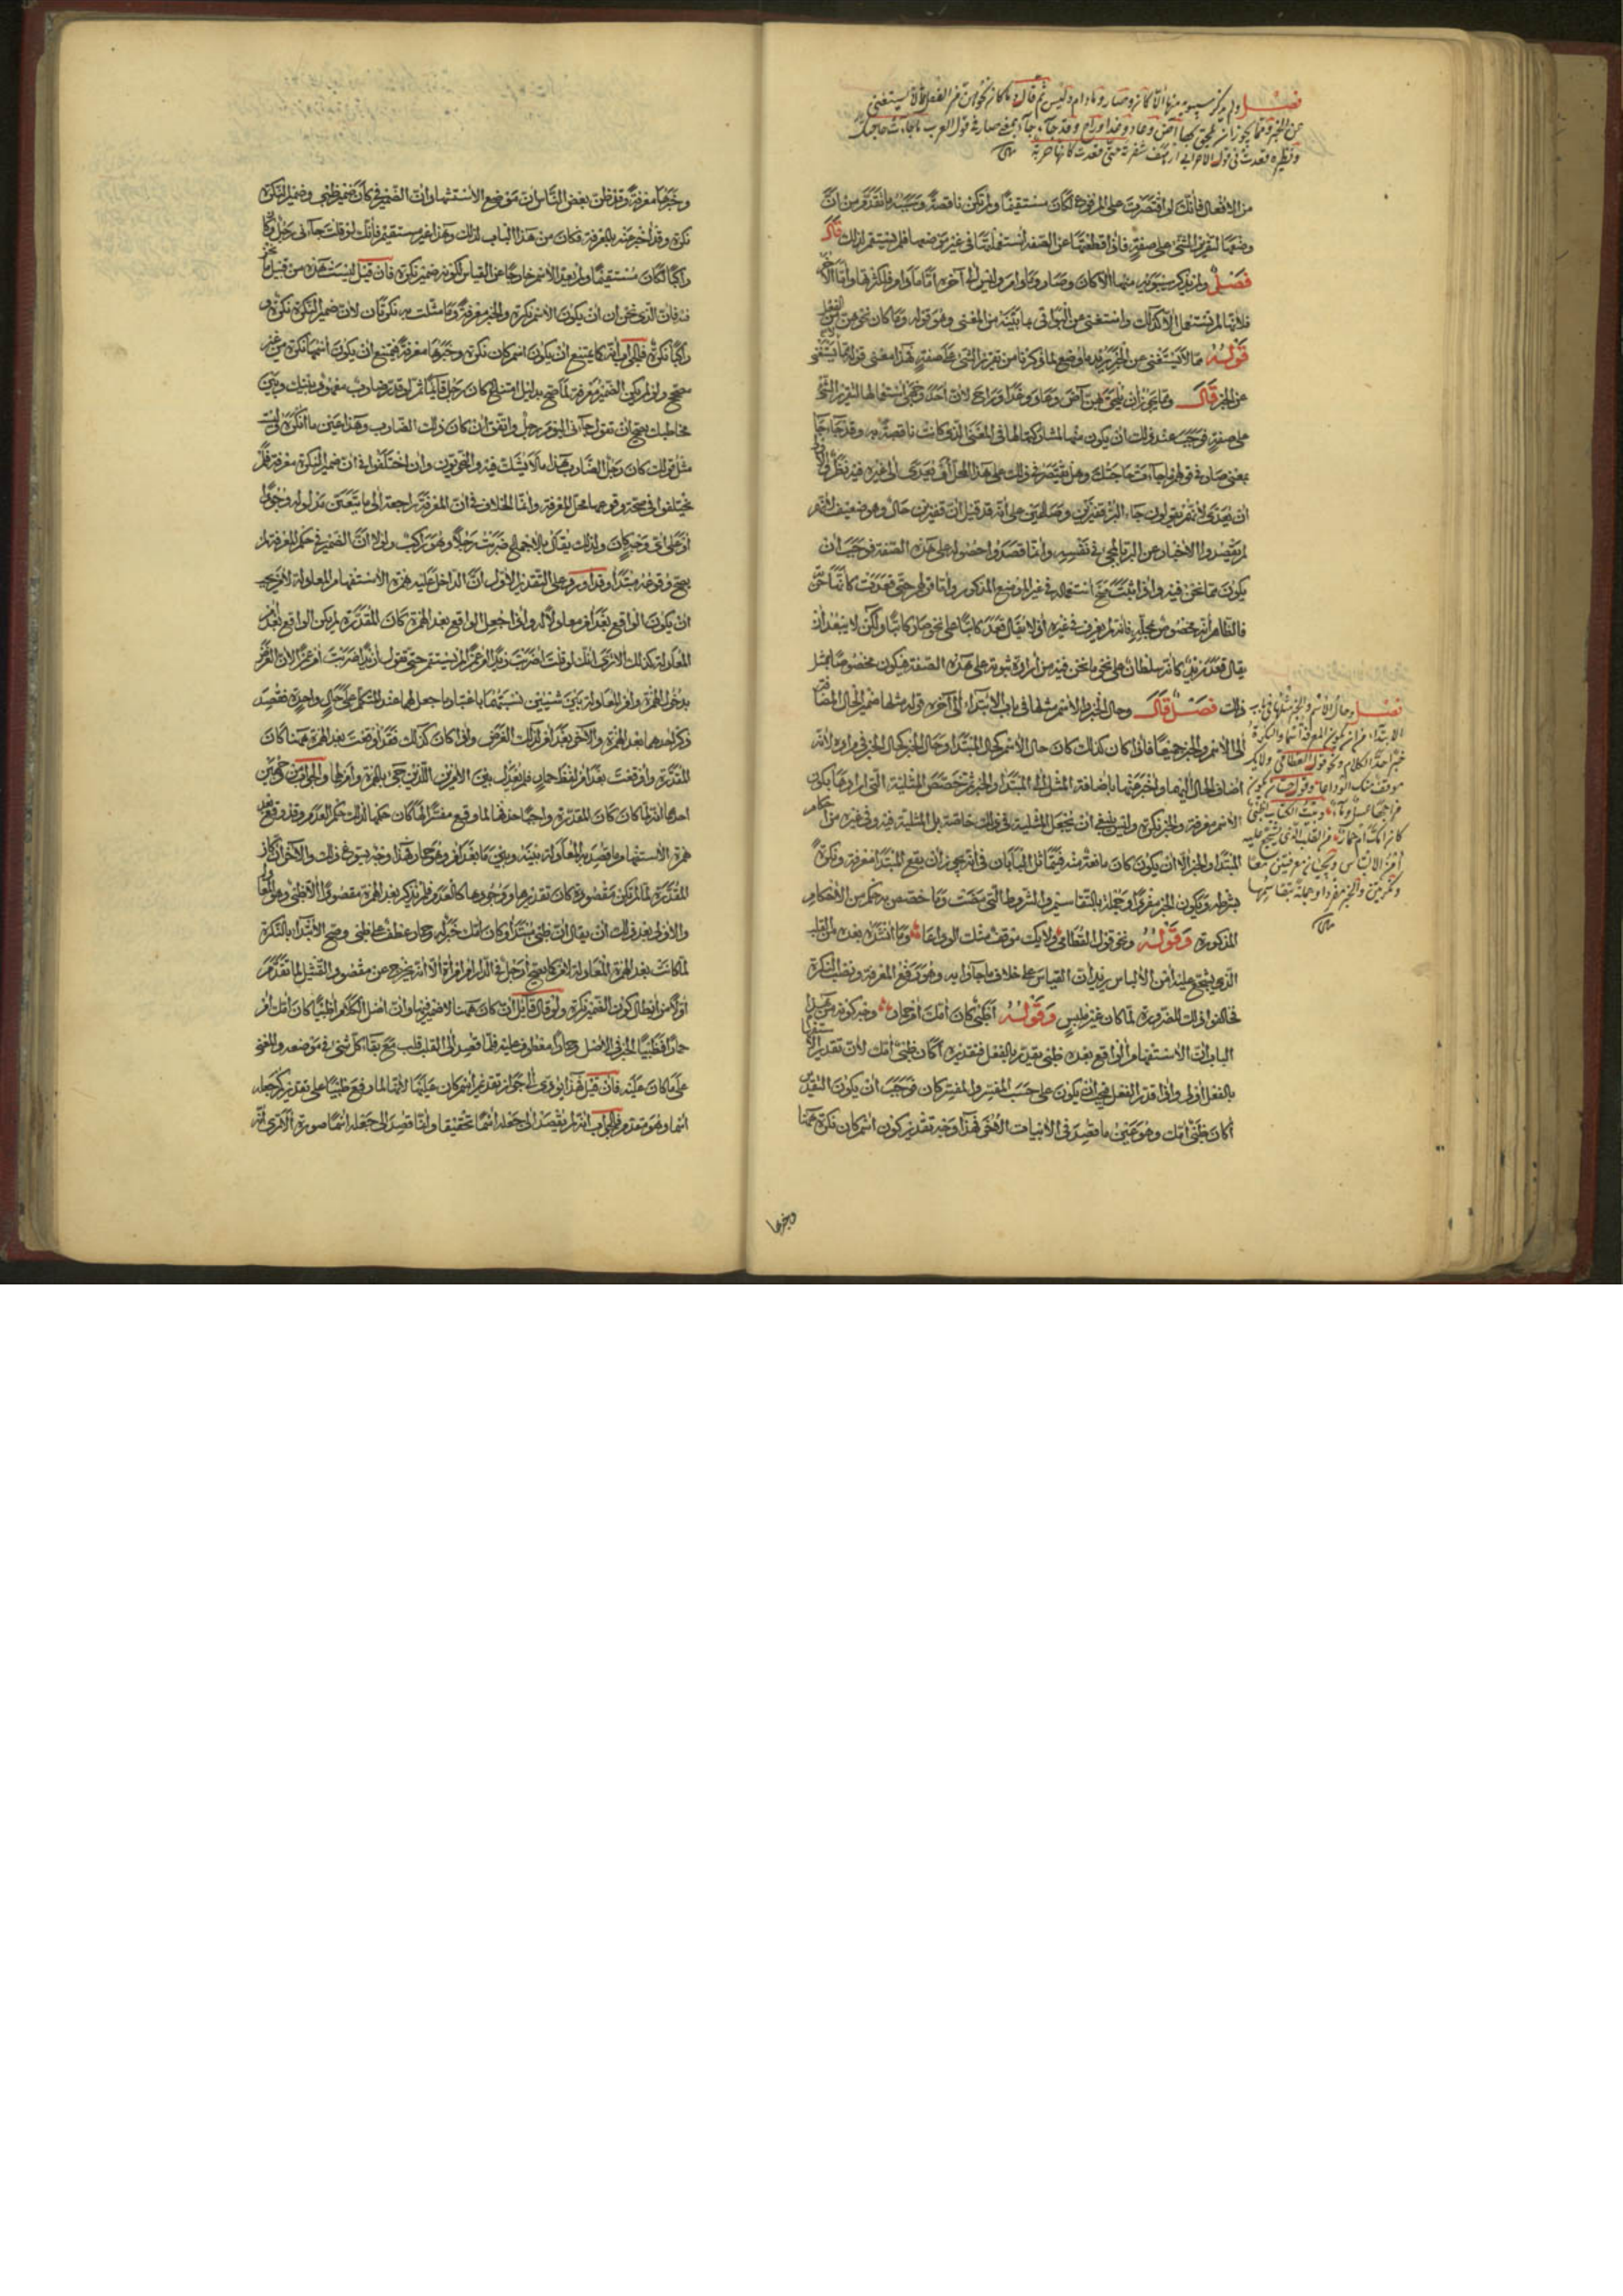 فصل ولم يذكر سيبويه منها إلا كان وصار وما دام وليس ثم قال وما كان نحوهن من الفعل مما لا يستغني
عن الخبر ومما يجوز أن يلحق بها آض وعاد وغدا وراح وقد جاء جاء بمعنى صار في قول العرب ما جاءت حاجتك
ونظيره قعدت في قول الأعرابي أرهف شفرته حتى قعدت كأنها حربة
من الأفعال فإنك لو اقتصرت على المرفوع لكان مستقيما ولم تكن ناقصة وسببه ما تقدم من أن
وضعها لتقرير الشيء على صفة فإذا قطعتها عن الصفة استعملتها في غير موضعها فلم يستقم لذلك قال
فصل ولم يذكر سيبويه منها إلا كان وصار وما دام وليس إلى آخره أما ما دام فلكثرتها وإما
فلأنها لم تستعمل إلا كذلك واستغنى عن البواقي بما بينه من المعنى وهو قوله وما كان نحوهن من الفعل
قوله مما لا يستغني عن الخبر يريد ما وضع لما ذكرنا من تقرير الشيء على صفة هذا معنى قولهم لا يستغنى
عن الخبر قال ومما يجوز أن يلحق بهن آض وعاد وغدا وراح لأن أحدا استعمالها لتقرير الشيء
على صفة فوجب عند ذلك أن يكون منها لمشاركتها لها في المعنى الذي كانت ناقصة به وقد جاء جاء
بمعنى صار في قولهم ما جاءت حاجتك وهل يقتصر في ذلك على هذا المحل أو يعدى إلى غيره فيه نظر
أن يعدى لأنهم يقولون جاء البر قفيزين وصاعين على أنه قد قيل إن قفيزين حال وهو ضعيف لأنهم
لم يقصدوا الإخبار عن البر بالمجيء في نفسه وإنما قصدوا حصوله على هذه الصفة فوجب أن
يكون مما نحن فيه وإذا ثبت صح استعماله في غير الموضع المذكور وأما قولهم حتى قعدت كأنها حربة
فالظاهر أنه مخصوص بمحله فإنه لم يعرف في غيره إذ لا يقال قعد كاتبا على نحو صار كاتبا ولكن لا يبعد أن
يقال قعد زيد كأنه سلطان على نحو ما نحن فيه من إرادة ثبوته على هذه الصفة فيكون مخصوصا بمثل
ذلك فصل قال وحال الخبر والاسم مثلها في باب الابتداء إلى آخره قوله مثلها ضمير الحال المضافة
إلى الاسم والخبر جميعا فإذا كان كذلك كان حال الاسم كحال المبتدأ وحال الخبر كحال الخبر في مراده لأنه
أضاف الحال إليهما وأخبر عنهما بإضافة المثل إلى المبتدأ والخبر ثم خصص المثلية التي أرادها بكون
الاسم معرفة والخبر نكرة وليس ينبغي أن تجعل المثلية في ذلك خاصة بل المثلية فيه وفي غيره من أحكام
المبتدأ والخبر إلا أن يكون كان مانعة منه فيتماثل البابان في أنه يجوز أن يقع المبتدأ معرفة ونكرة
بشرطه ويكون الخبر مفردا وجملة بالتقاسيم والشروط التي مضت وما خصص به حكم من الأحكام
المذكورة وقوله ونحو قول القطامي ولا يك موقف منك الوداعا وما أنشده بعده من القلب
الذي يشجع عليه أمن الإلباس يريد أن القياس على خلاف ما جاؤا به وهو رفع المعرفة ونصب النكرة
فخالفوا ذلك للضرورة لما كان غير ملبس وقوله أظبي كان أمك أم حمار وخبر كونه من هذا
الباب أن الاستفهام الواقع بعده ظبي يقدره بالفعل فتقديره أكان ظبي أمك لأن تقدير
بالفعل أولى وإذا قدر الفعل فيجب أن يكون على حسب المفسر والمفسر كان فوجب أن يكون التقدير
أكان ظبي أمك وهو عين ما قصد في الأبيات الأخر فهذا وجه تقديره كون اسم كان نكرة ههنا
فصل وحال الاسم والخبر مثلها في باب
الابتداء من أن كون المعرفة اسما والنكرة
خبرا حد الكلام ونحو قول القطامي ولا يك
موقف منك الوداعا وقول حسان يكون
مزاجها عسل وماء وبيت الكتاب أظبي
كان أمك أم حمار من القلب الذي يشجع عليه
أمن الإلباس ويجيئان معرفتين معا
ونكرتين والخبر مفردا وجملة بتقاسيمها
وخبرها
وخبرها معرفة وقد ظن بعض الناس أن موضع الاستشهاد أن الضمير في كان ضمير ظبي وضمير النكرة
نكرة وقد أخبر عنه بالمعرفة فكان من هذا الباب لذلك وهذا غير مستقيم فإنك لو قلت جاءني رجل وكان
راكبا لكان مستقيما ولم يعد الاسم خارجا عن القياس لكونه ضمير نكرة فإن قيل ليست هذه من قبيل ما نحن
فيه فإن الذي نحن أن يكون الاسم نكرة والخبر معرفة وما مثلت به نكرتان لأن ضمير النكرة نكرة و
راكبا نكرة فالجواب أنه كما يمتنع أن يكون اسم كان نكرة وخبرها معرفة يمتنع أن يكون اسمها نكرة من غير
مصحح ولو لم يكن الضمير معرفة لما صح بدليل امتناع كان رجل قائما ثم لو قدر ضارب معهود بينك وبين
مخاطبك يصح أن تقول جاءني اليوم رجل واتفق أن كان ذلك الضارب وهذا عين ما أنكره ليس
مثل قولك كان رجل الضارب هذا ما لا يشك فيه والنحويون وإن اختلفوا في أن ضمير النكرة معرفة فلم
يختلفوا في صحة وقوعها محل المعرفة وإنما الخلاف في أن المعرفة راجعة إلى ما يتعين مدلوله وجودا
أو على أي وجه كان ولذلك يقال بالإجماع ضربت رجلا وهو راكب ولولا أن الضمير في حكم المعرفة لم
يصح وقوعه مبتدأ وقد أورد على التقدير الأول أن الداخل عليه همزة الاستفهام المعادلة لأم يجب
أن يكون الواقع بعد أم معادلا له وإذا جعل الواقع بعد الهمزة كان المقدرة لم يكن الواقع بعد أم
المعادلة كذلك ألا ترى أنك لو قلت أضربت زيدا أم عمرا لم يستقم حتى تقول أزيدا ضربت أم عمرا لأن الغرض
بدخول الهمزة وأم المعادلة بين شيئين نسبتهما باعتبار ما جعل لهما عند المتكلم على حال واحدة فقصد
ذكر أحدهما بعد الهمزة والآخر بعد أم لذلك الغرض وإذا كان كذلك فقد أوقعت بعد الهمزة ههنا كان
المقدرة وأوقعت بعد أم لفظ حمار فلم يعدل بين الأمرين اللذين جيء بالهمزة وأم لهما والجواب من وجهين
أحدهما أنه لما كان كان المقدرة واجبا حذفها لما وقع مفسرا لها كان حكمها لذلك حكم العدم وقد وقع بعد
همزة الاستفهام ما قصد به المعادلة بينه وبين ما بعد أم وهو حمار فهذا وجه يسوغ ذلك والآخر أن كان
المقدرة لما لم تكن مقصودة كان تقديرها ووجودها كالعدم فلم يذكر بعد الهمزة مقصودا إلا ظبي وهو المعادل
والأولى بعد ذلك أن يقال إن ظبي مبتدأ وكان أمك خبر له وحمار عطف على ظبي وصح الابتداء بالنكرة
لما كانت بعد الهمزة المعادلة لأم كما يصح أرجل في الدار أم امرأة إلا أنه يخرج عن مقصود التمثيل لما تقدم
أولا من إبطال كون الضمير نكرة ولو قال قائل إن كان ههنا لا ضمير فيها وإن أصل الكلام أظبيا كان أمك أم
حمارا فظبيا الخبر في الأصل وحمارا معطوف عليه فلما قصد إلى القلب قلب مع بقاء كل شيء في موضعه والمعنى
على ما كان عليه فإن قيل فهذا يؤدي إلى جواز تقديم اسم كان عليها لأنها لما رفع ظبيا على تقدير كجعله
اسما وهو متقدم فالجواب أنه لم يقصد إلى جعله اسما تحقيقا وإنما قصد إلى جعله اسما صورة ألا ترى أنه